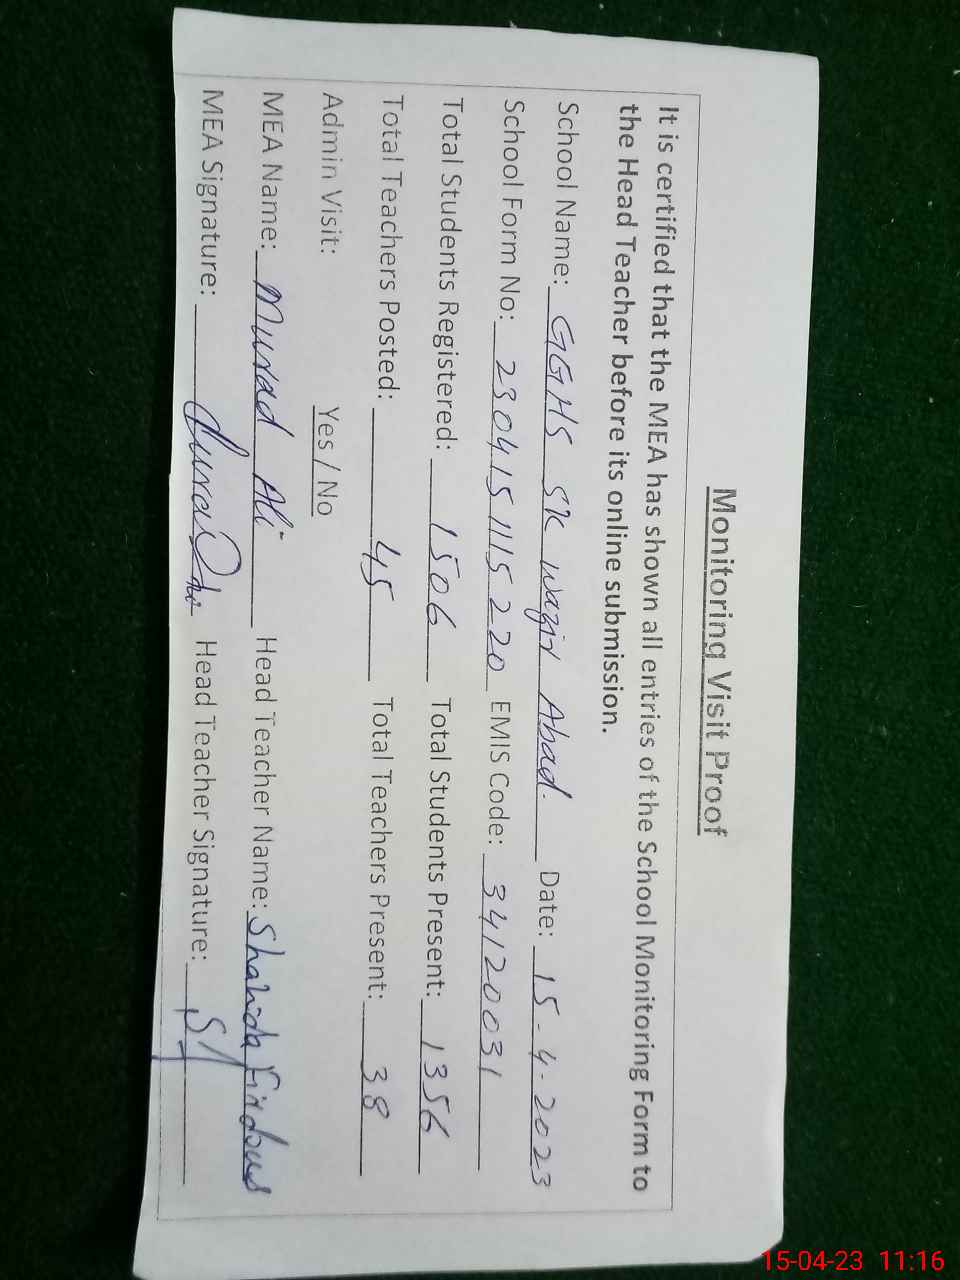 Monitoring Visit Proof
It is certified that the MEA has shown all entries of the School Monitoring Form to
the Head Teacher before its online submission.
School Name: GGHS SK Wazir Abad. Date: 15-4-2023
School Form No: 2304151115220 EMIS Code: 34120031
Total Students Registered: 1506 Total Students Present: 1356
Total Teachers Posted: 45 Total Teachers Present: 38
Admin Visit: Yes / No
MEA Name: Murad Ali Head Teacher Name: Shahida Firdous
MEA Signature: Head Teacher Signature:
15-04-23 11:16